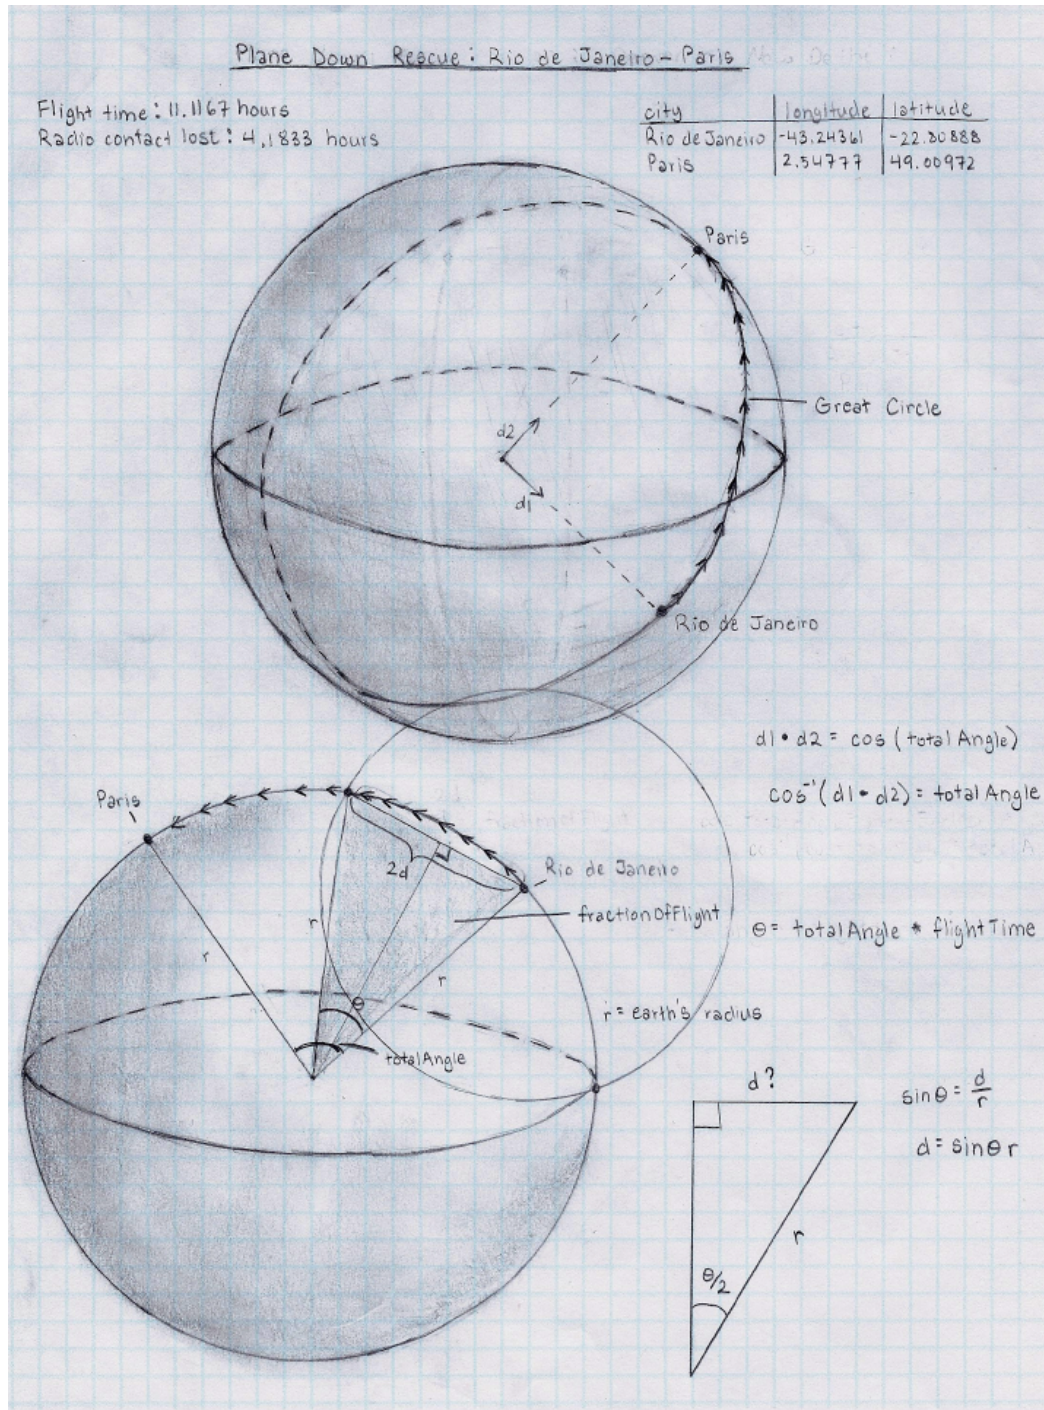 Plane Down Rescue: Rio de Janeiro - Paris
Flight time: 11.1167 hours
Radio contact lost: 4.1833 hours
city longitude latitude
Rio de Janeiro -43.24361 -22.80888
Paris 2.54777 49.00972
Paris
Great Circle
d2
d1
Rio de Janeiro
d1 • d2 = cos (total Angle)
cos⁻¹(d1 • d2) = total Angle
Paris
2d
Rio de Janeiro
fractionOfFlight
θ = totalAngle * flightTime
r
r
r
θ
r = earth's radius
totalAngle
d?
sinθ = d/r
d = sinθ r
r
θ/2